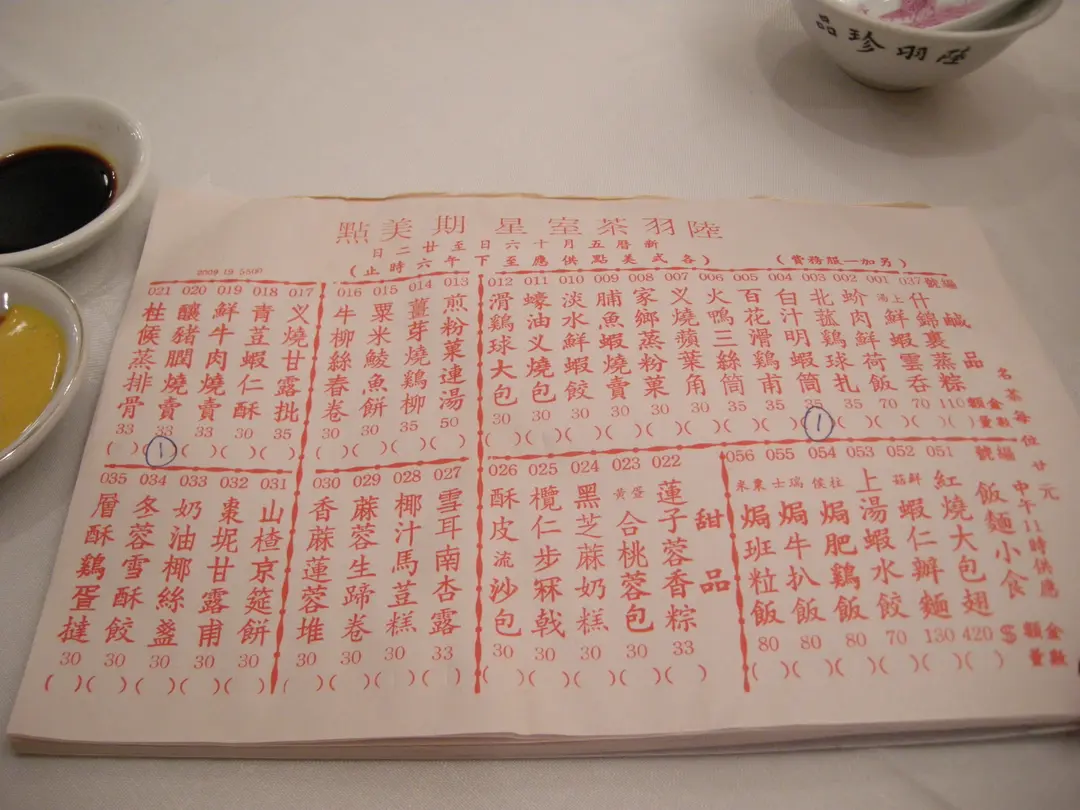 陸羽珍品
陸羽茶室星期美點
新曆五月十六日至廿二日
(各式美點供應至下午六時止)
(另加一服務賞)
2009 19 5800
編號
鹹品
金額
數量
名茶每位廿元
037 什錦裹蒸粽 110 ( )
001 上湯鮮蝦雲吞 70 ( )
002 蚧肉鮮荷飯 70 ( )
003 北菰鷄球扎 35 ( )
004 白汁明蝦筒 35 (1)
005 百花滑鷄甫 35 ( )
006 火鴨三絲筒 35 ( )
007 义燒蘋葉角 30 ( )
008 家鄉蒸粉菓 30 ( )
009 脯魚蝦燒賣 30 ( )
010 淡水鮮蝦餃 30 ( )
011 蠔油义燒包 30 ( )
012 滑鷄球大包 30 ( )
013 煎粉菓連湯 50 ( )
014 薑芽燒鷄柳 35 ( )
015 粟米鯪魚餅 30 ( )
016 牛柳絲春卷 30 ( )
017 义燒甘露批 35 ( )
018 青荳蝦仁酥 30 ( )
019 鮮牛肉燒賣 33 ( )
020 釀豬膶燒賣 33 (1)
021 桂候蒸排骨 33 ( )
編號
飯麵小食
中午11時供應
$金額
數量
051 紅燒大包翅 420 ( )
052 鮮菇蝦仁辦麵 130 ( )
053 上湯蝦水餃 70 ( )
054 柱侯焗肥鷄飯 80 ( )
055 瑞士焗牛扒飯 80 ( )
056 粟米焗班粒飯 80 ( )
甜品
022 蓮子蓉香粽 33 ( )
023 蛋黃合桃蓉包 30 ( )
024 黑芝蔴奶糕 30 ( )
025 欖仁步冧戟 30 ( )
026 酥皮流沙包 30 ( )
027 雪耳南杏露 33 ( )
028 椰汁馬荳糕 30 ( )
029 蔴蓉生蹄卷 30 ( )
030 香蔴蓮蓉堆 30 ( )
031 山楂京筵餅 30 ( )
032 棗坭甘露甫 30 ( )
033 奶油椰絲盞 30 ( )
034 冬蓉雪酥餃 30 ( )
035 層酥鷄疍撻 30 ( )